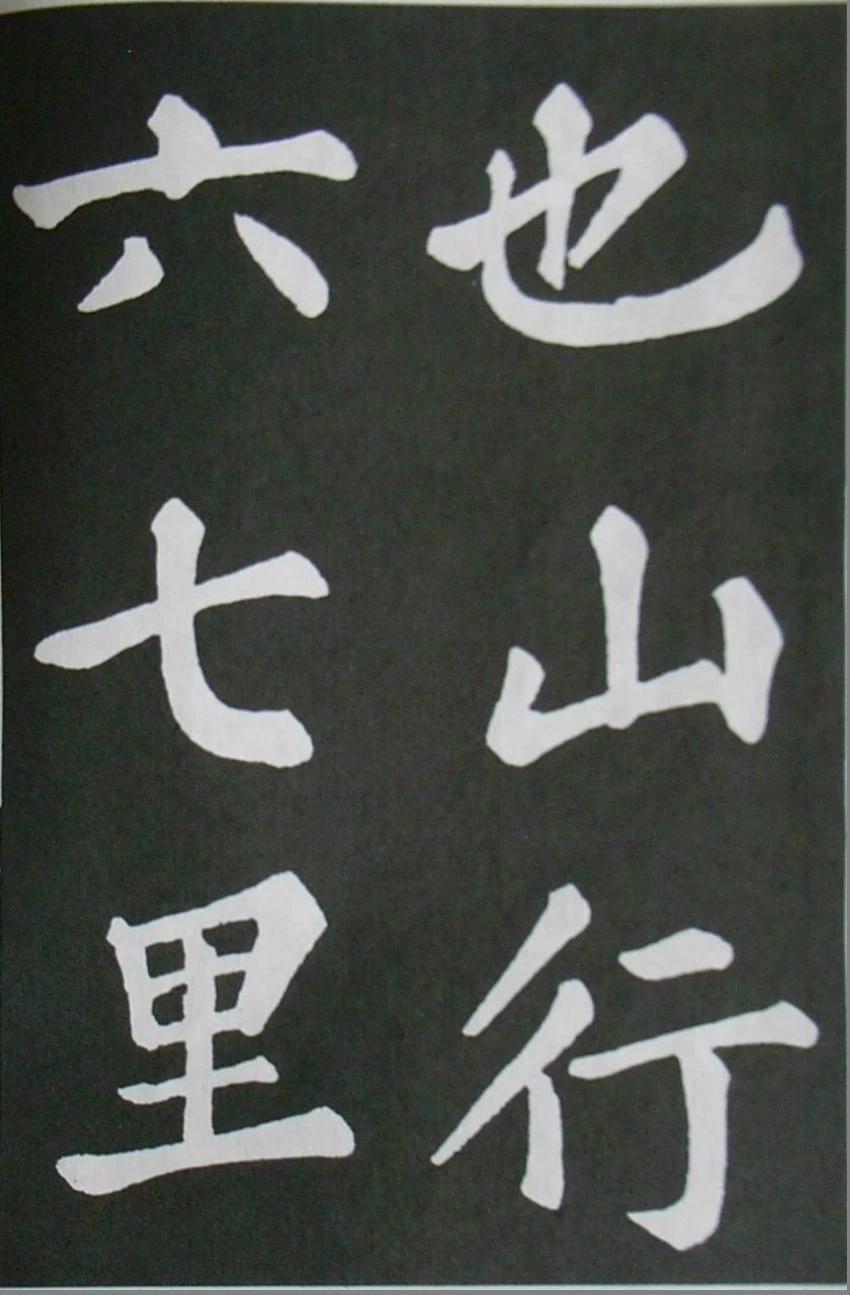 也山行
六七里